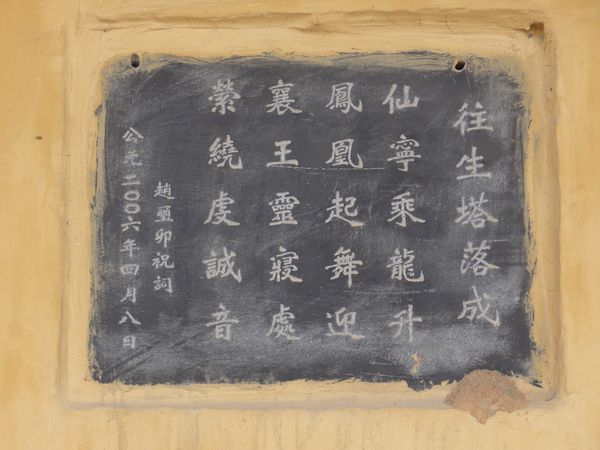 往生塔落成
仙寧乘龍升
鳳凰起舞迎
襄王靈寢處
縈繞虔誠音
趙璽卯祝詞
公元二00六年四月八日